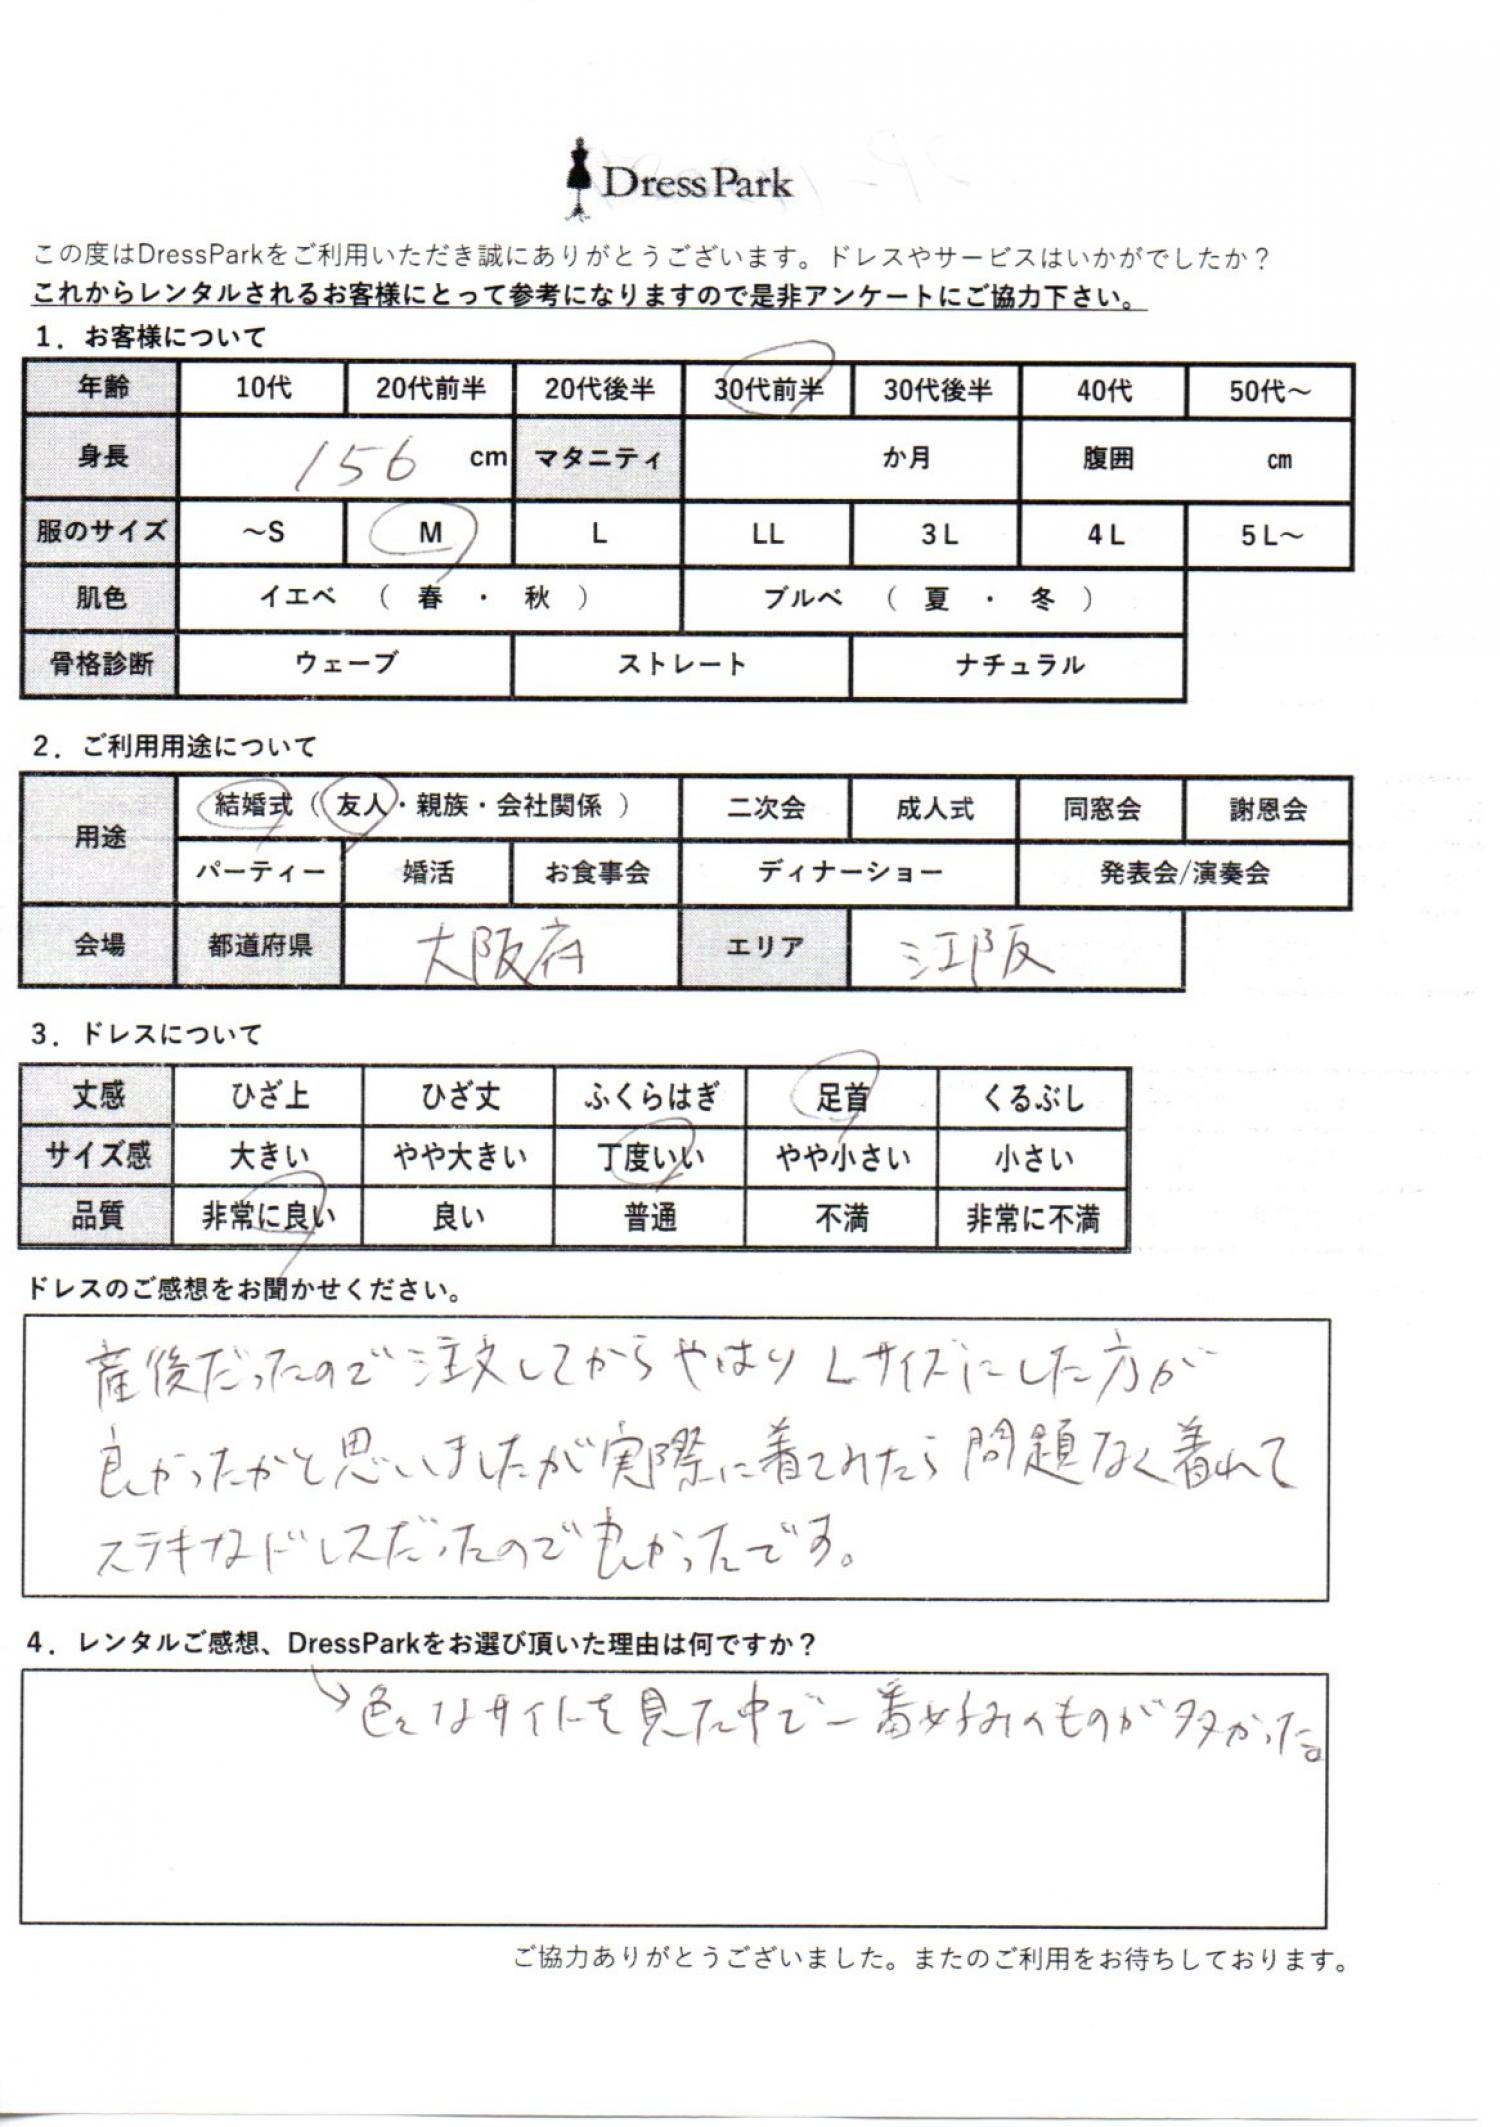 DressPark
この度はDressParkをご利用いただき誠にありがとうございます。ドレスやサービスはいかがでしたか？
これからレンタルされるお客様にとって参考になりますので是非アンケートにご協力下さい。
1．お客様について
年齢 10代 20代前半 20代後半 30代前半 30代後半 40代 50代～
身長 156 cm マタニティ か月 腹囲 cm
服のサイズ ～S M L LL 3L 4L 5L～
肌色 イエベ （ 春 ・ 秋 ） ブルベ （ 夏 ・ 冬 ）
骨格診断 ウェーブ ストレート ナチュラル
2．ご利用用途について
用途 結婚式（ 友人・親族・会社関係 ） 二次会 成人式 同窓会 謝恩会
パーティー 婚活 お食事会 ディナーショー 発表会/演奏会
会場 都道府県 大阪府 エリア 江阪
3．ドレスについて
丈感 ひざ上 ひざ丈 ふくらはぎ 足首 くるぶし
サイズ感 大きい やや大きい 丁度いい やや小さい 小さい
品質 非常に良い 良い 普通 不満 非常に不満
ドレスのご感想をお聞かせください。
産後だったので注文してからやはりLサイズにした方が
良かったかと思いましたが実際に着てみたら問題なく着れて
ステキなドレスだったので良かったです。
4．レンタルご感想、DressParkをお選び頂いた理由は何ですか？
→色々なサイトを見た中で一番好みのものが多かった。
ご協力ありがとうございました。またのご利用をお待ちしております。